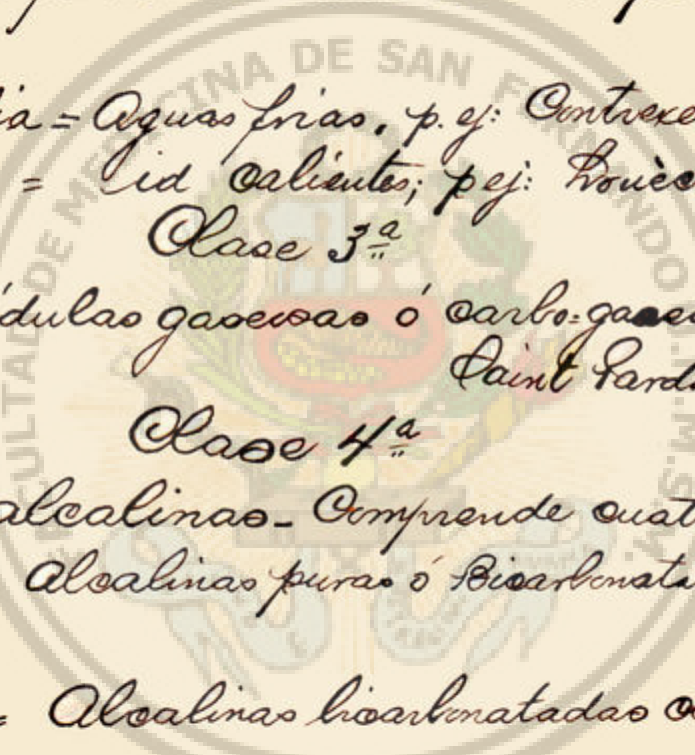 ia = Aguas frias, p. ej: Contrexe
= id calientes; p ej: Louèc
Clase 3ª
ídulas gaseosas ó carbo=gaseo
Saint Pard
Clase 4ª
alcalinas_ Comprende cuat
Alcalinas puras ó Bicarbonata
= Alcalinas bicarbonatadas c
FACULTAD DE MEDICINA DE SAN FERNANDO U.N.M.S.M.